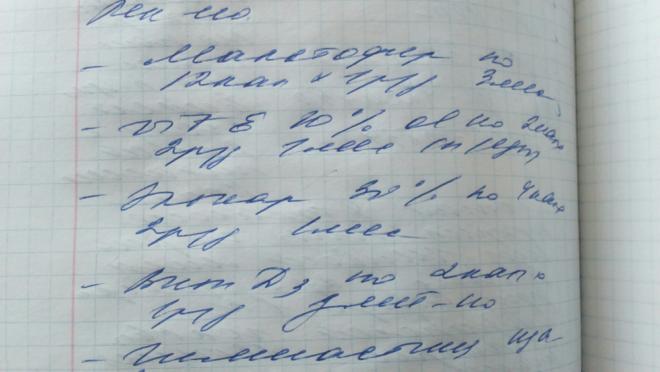 Рек-но.
- Мальтофер по
12 кап х 1р/д 3 мес,
- вит Е 10% ов по 2 кап
2р/д 1 мес
- Элькар 30% по 4 кап
2р/д 1 мес
- Вит Д3 по 2 кап
1р/д длит-но
- Гимнастика